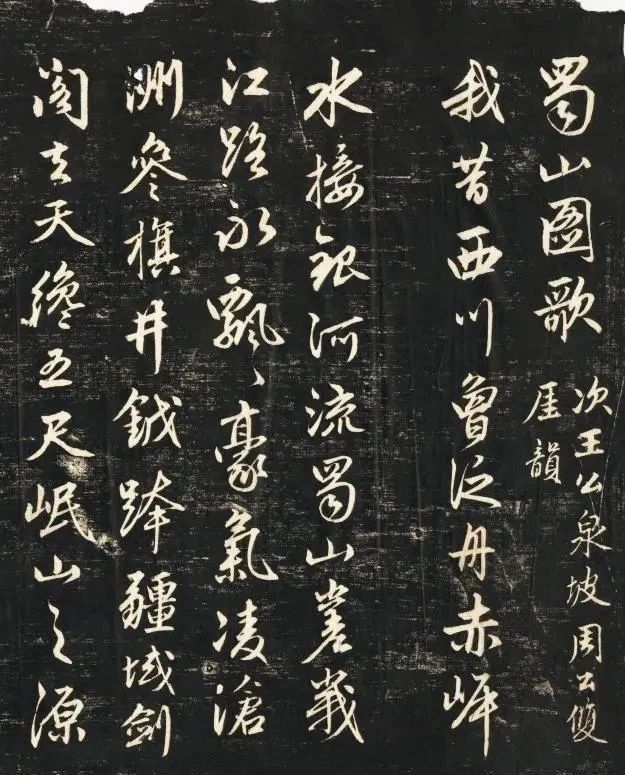 蜀山圖歌
次王公泉坡周公雙
厓韻
我昔西川曾泛舟赤岬
水接銀河流蜀山嵳峩
江路永飄〻豪氣凌滄
洲參旗井鉞跨疆域劍
閣去天纔五尺岷山之源